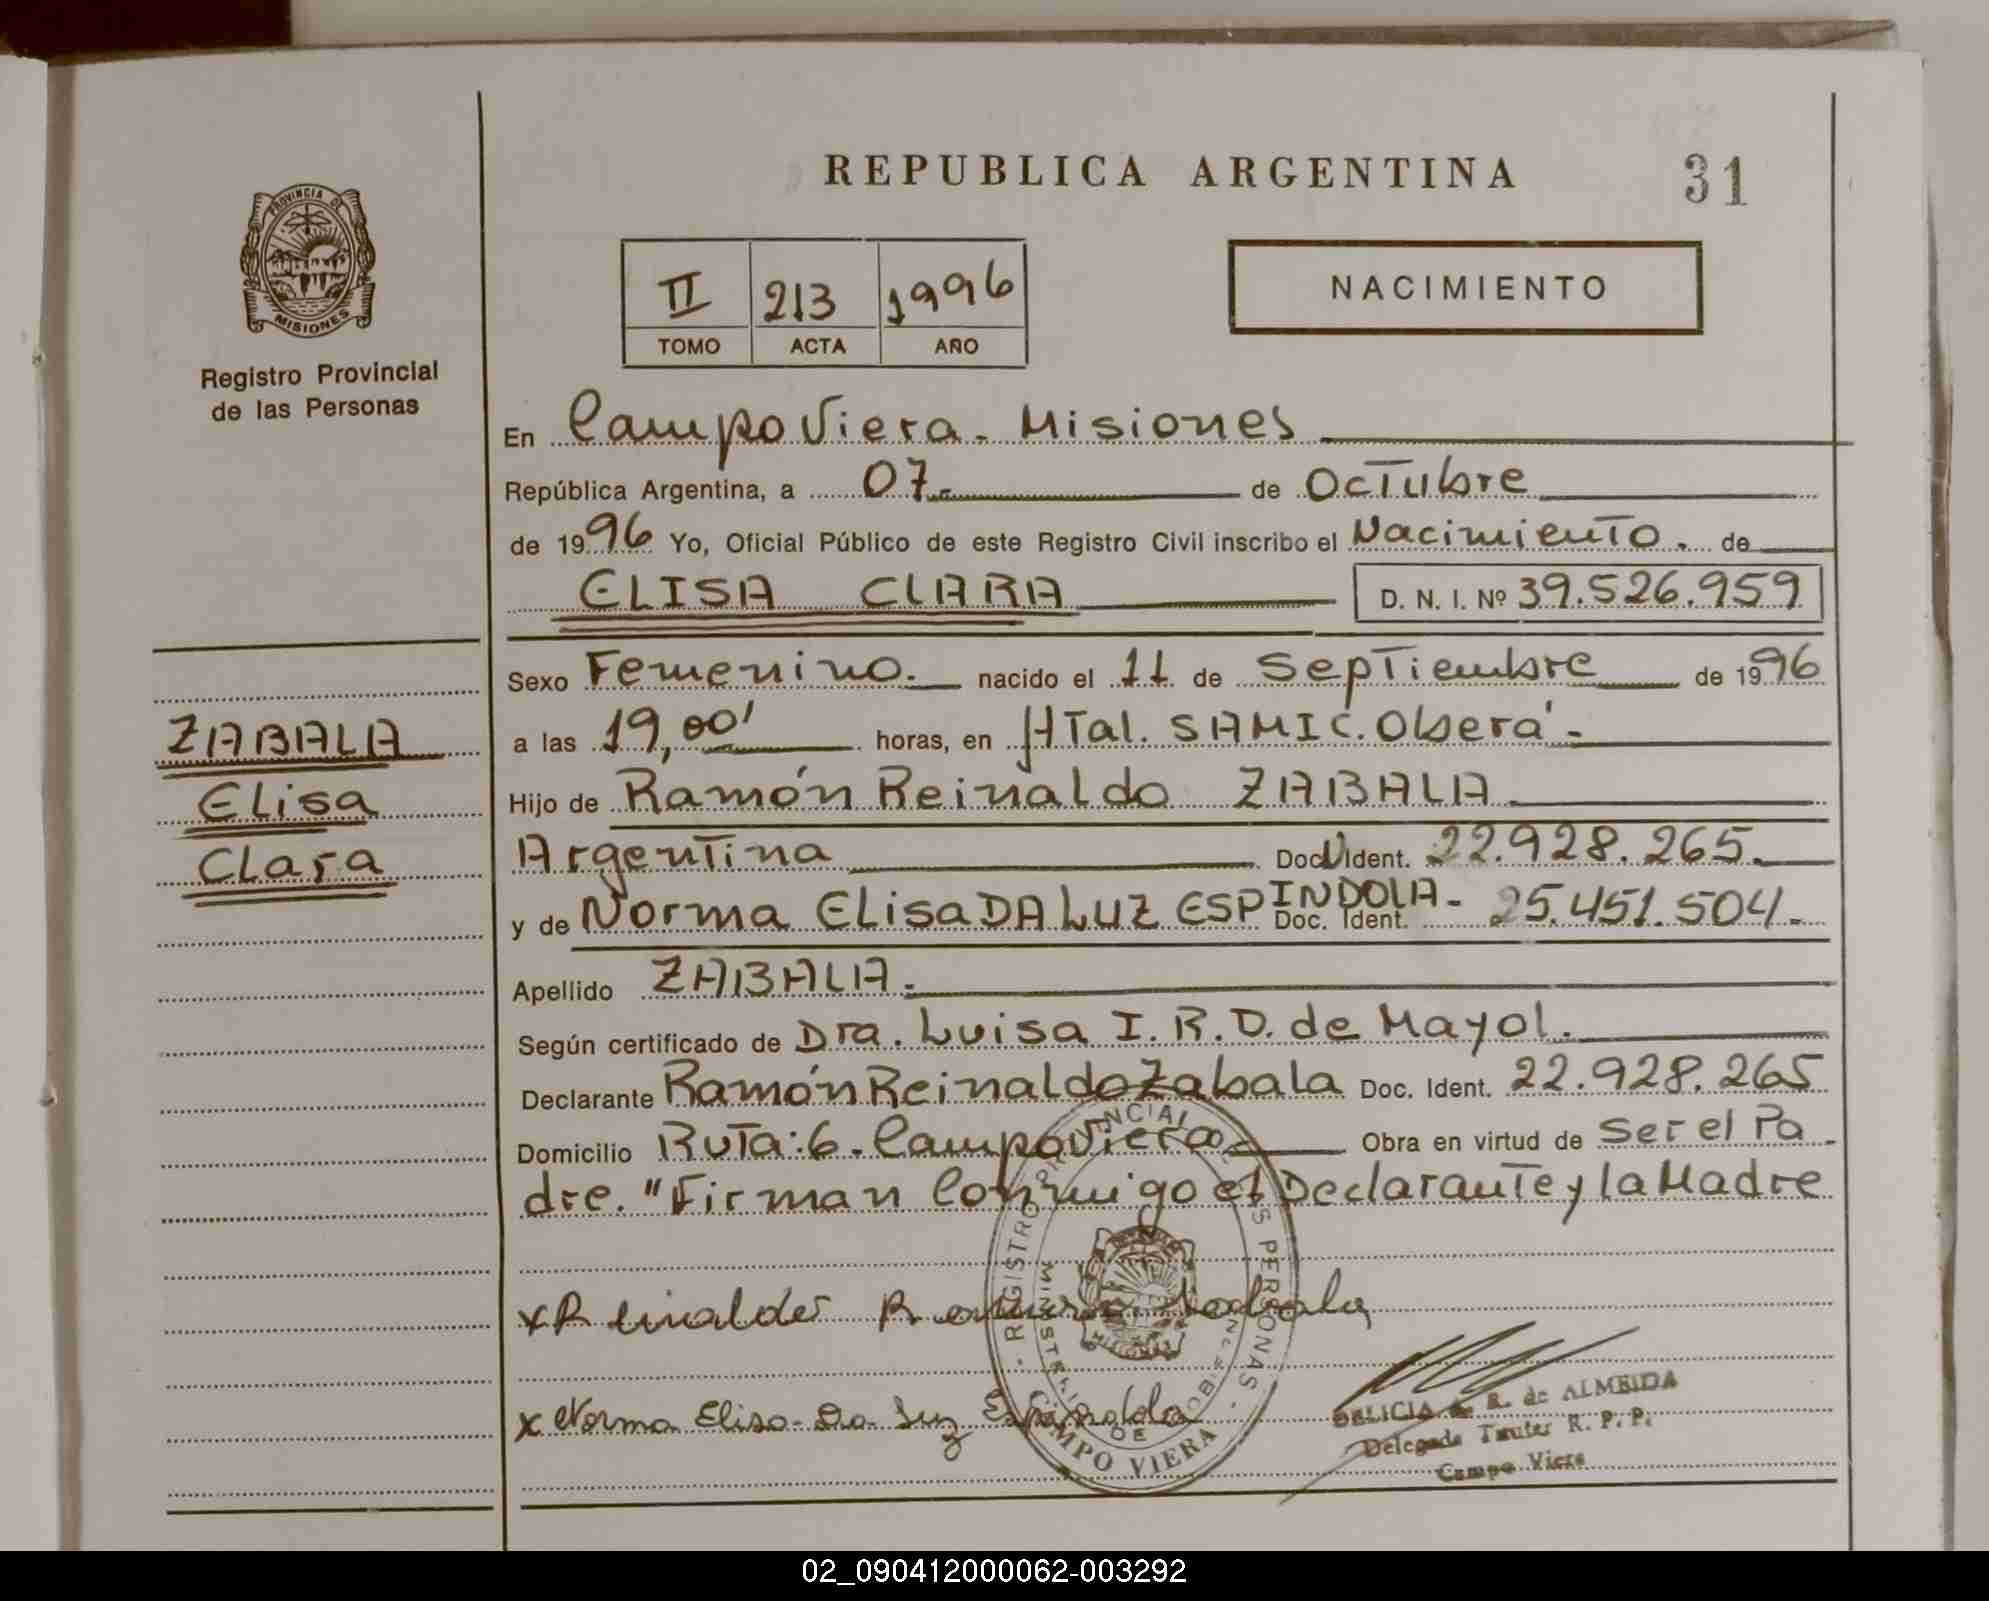 REPUBLICA ARGENTINA
31
PROVINCIA DE
MISIONES
Registro Provincial
de las Personas
II 213 1996
TOMO ACTA AÑO
NACIMIENTO
En Campo Viera - Misiones
República Argentina, a 07- de Octubre
de 1996 Yo, Oficial Público de este Registro Civil inscribo el Nacimiento. de
ELISA CLARA D. N. I. Nº 39.526.959
Sexo Femenino. nacido el 11 de Septiembre de 1996
ZABALA
a las 19,00' horas, en HTal. SAMIC. Oberá.-
Elisa
Hijo de Ramón Reinaldo ZABALA
Clara
Argentina Doc U Ident. 22.928.265.
y de Norma ELisa DA LUZ ESPINDOLA - Doc. Ident. 25.451.504.-
Apellido ZABALA.
Según certificado de Dra. Luisa I. R. D. de Mayol.
Declarante Ramón Reinaldo Zabala Doc. Ident. 22.928.265
Domicilio RuTa: 6. Campo Viera - Obra en virtud de Ser el Pa-
dre. "Firman Conmigo el Declarante y la Madre
REGISTRO PROVINCIAL DE LAS PERSONAS
CAMPO VIERA
x Norma Elisa Da Luz Espindola
DELICIA R. de ALMEIDA
Delegada Titular R. P. P.
Campo Viera
02_090412000062-003292